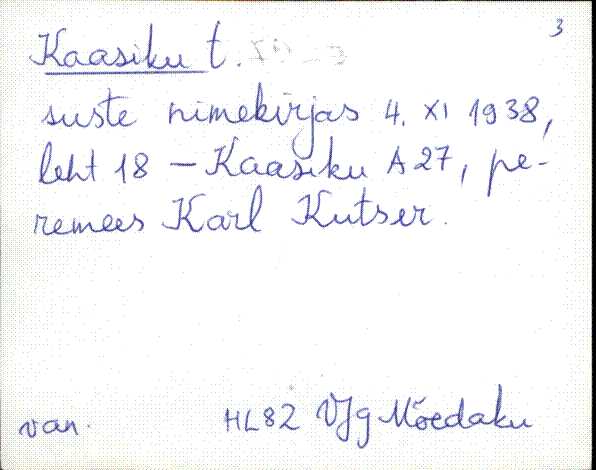 3
Kaasiku t.
suste nimekirjas 4. XI 1938,
leht 18 – Kaasiku A 27, pe-
remees Karl Kutser.
van. HL82 VJg Mõedaku